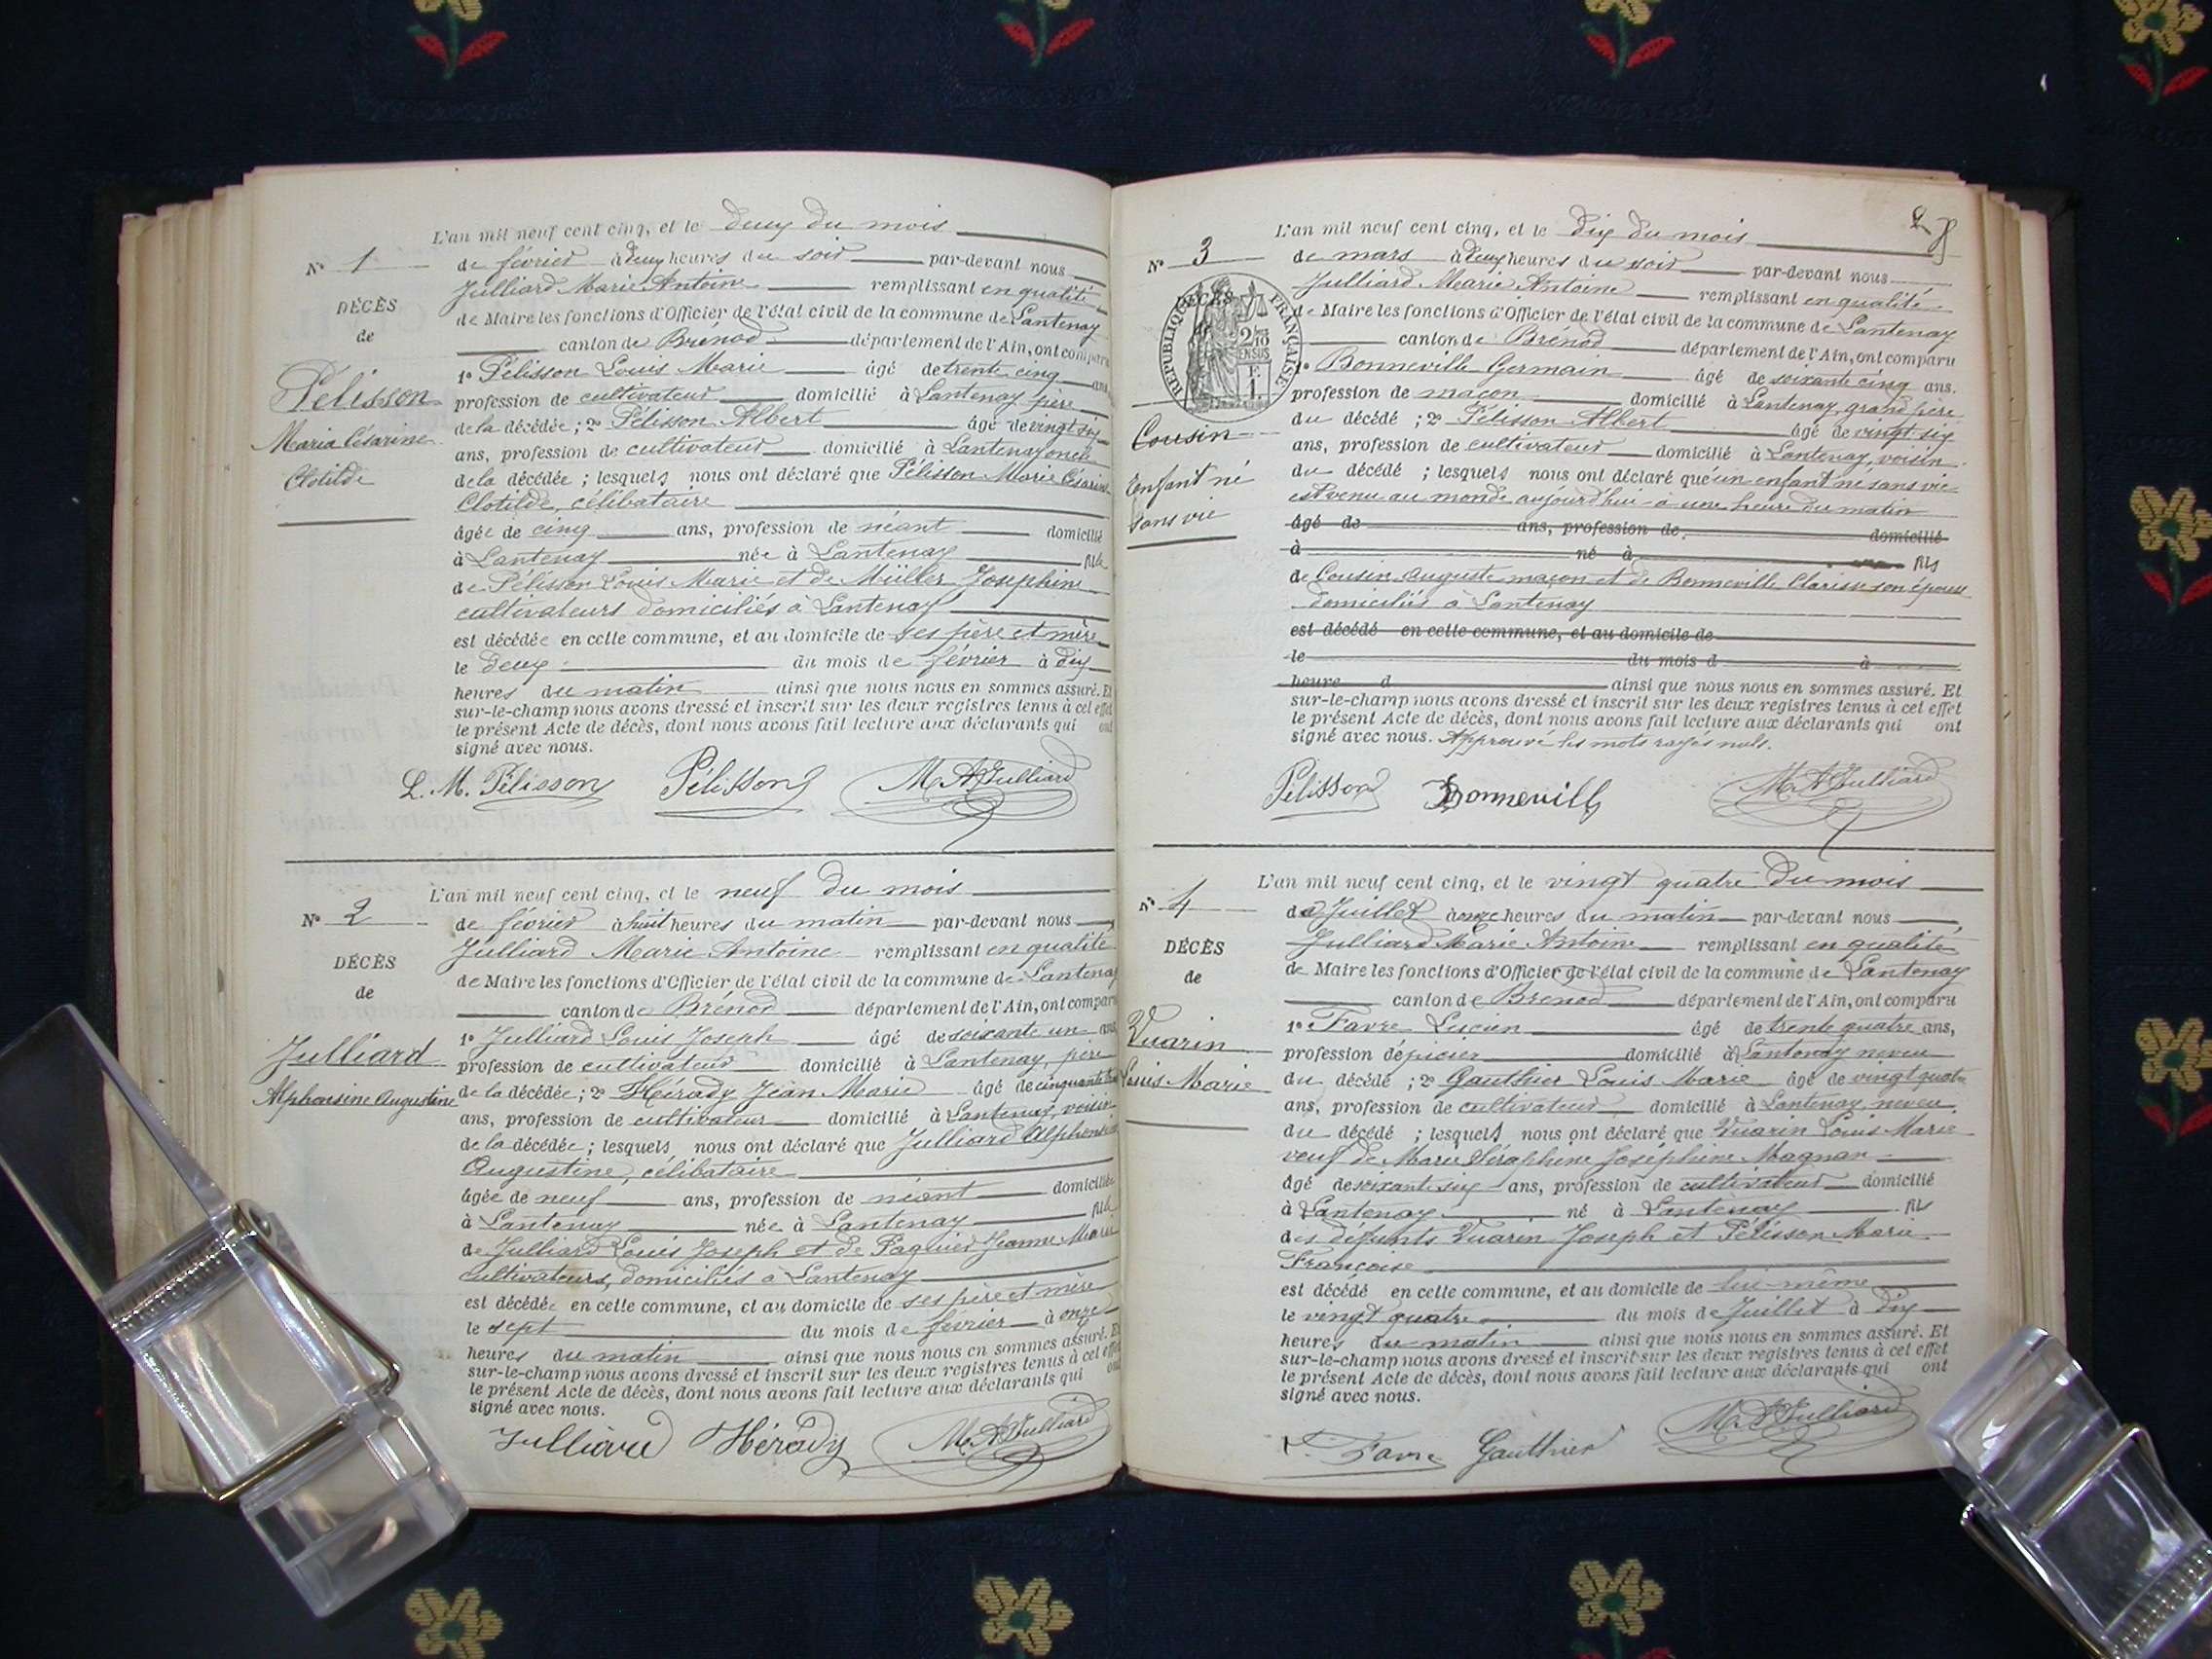 L'an mil neuf cent cinq, et le deux du mois
N° 1
de février à deux heures du soir par-devant nous
Julliard Marie Antoine remplissant en qualité
DÉCÈS
de Maire les fonctions d'Officier de l'état civil de la commune de Lantenay
de
canton de Brénod département de l'Ain, ont comparu
1° Pélisson Louis Marie âgé de trente cinq ans
Pélisson
profession de cultivateur domicilié à Lantenay père
de la décédée ; 2° Pélisson Albert âgé de vingt six
Maria Césarine
ans, profession de cultivateur domicilié à Lantenay oncle
Clotilde
de la décédée ; lesquels nous ont déclaré que Pélisson Marie Césarine
Clotilde, célibataire
âgée de cinq ans, profession de néant domicilié
à Lantenay née à Lantenay fille
de Pélisson Louis Marie et de Müller Joséphine
cultivateurs domiciliés à Lantenay
est décédée en cette commune, et au domicile de ses père et mère
le deux du mois de février à dix
heures du matin ainsi que nous nous en sommes assuré. Et
sur-le-champ nous avons dressé et inscrit sur les deux registres tenus à cet effet
le présent Acte de décès, dont nous avons fait lecture aux déclarants qui ont
signé avec nous.
L. M. Pélisson Pélisson M A Julliard
L'an mil neuf cent cinq, et le neuf du mois
N° 2
de février à huit heures du matin par-devant nous
Julliard Marie Antoine remplissant en qualité
DÉCÈS
de Maire les fonctions d'Officier de l'état civil de la commune de Lantenay
de
canton de Brénod département de l'Ain, ont comparu
1° Julliard Louis Joseph âgé de soixante un ans
Julliard
profession de cultivateur domicilié à Lantenay, père
Alphonsine Augustine
de la décédée ; 2° Hérady Jean Marie âgé de cinquante
ans, profession de cultivateur domicilié à Lantenay, voisin
de la décédée ; lesquels nous ont déclaré que Julliard Alphonsine
Augustine, célibataire
âgée de neuf ans, profession de néant domiciliée
à Lantenay née à Lantenay fille
de Julliard Louis Joseph et de Paquier Jeanne Marie
cultivateurs, domiciliés à Lantenay
est décédée en cette commune, et au domicile de ses père et mère
le sept du mois de février à onze
heures du matin ainsi que nous nous en sommes assuré. Et
sur-le-champ nous avons dressé et inscrit sur les deux registres tenus à cet effet
le présent Acte de décès, dont nous avons fait lecture aux déclarants qui ont
signé avec nous.
Julliard Hérady M A Julliard
L'an mil neuf cent cinq, et le dix du mois
N° 3
de mars à deux heures du soir par-devant nous
Julliard Marie Antoine remplissant en qualité
DÉCÈS
RÉPUBLIQUE FRANÇAISE
2/10 EN SUS
de Maire les fonctions d'Officier de l'état civil de la commune de Lantenay
canton de Brénod département de l'Ain, ont comparu
1° Bonneville Germain âgé de soixante cinq ans.
profession de maçon domicilié à Lantenay, grand père
du décédé ; 2° Pélisson Albert âgé de vingt six
Cousin
ans, profession de cultivateur domicilié à Lantenay, voisin
Enfant né
du décédé ; lesquels nous ont déclaré qu'un enfant né sans vie
sans vie
est venu au monde aujourd'hui à une heure du matin
âgé de ans, profession de domicilié
à né à fils
de Cousin Auguste maçon et de Bonneville Clarisse son épouse
domiciliés à Lantenay
est décédé en cette commune, et au domicile de
le du mois d à
heure d ainsi que nous nous en sommes assuré. Et
sur-le-champ nous avons dressé et inscrit sur les deux registres tenus à cet effet
le présent Acte de décès, dont nous avons fait lecture aux déclarants qui ont
signé avec nous. Approuvé les mots rayés nuls.
Pélisson Bonneville M A Julliard
L'an mil neuf cent cinq, et le vingt quatre du mois
N° 4
de Juillet à onze heures du matin par-devant nous
DÉCÈS
Julliard Marie Antoine remplissant en qualité
de
de Maire les fonctions d'Officier de l'état civil de la commune de Lantenay
canton de Brénod département de l'Ain, ont comparu
Vuarin
1° Favre Lucien âgé de trente quatre ans,
profession d'épicier domicilié à Lantenay neveu
Louis Marie
du décédé ; 2° Gauthier Louis Marie âgé de vingt quatre
ans, profession de cultivateur domicilié à Lantenay, neveu
du décédé ; lesquels nous ont déclaré que Vuarin Louis Marie
veuf de Marie Séraphine Joséphine Magnan
âgé de soixante six ans, profession de cultivateur domicilié
à Lantenay né à Lantenay fils
des défunts Vuarin Joseph et Pélisson Marie
Françoise
est décédé en cette commune, et au domicile de lui-même
le vingt quatre du mois de Juillet à dix
heures du matin ainsi que nous nous en sommes assuré. Et
sur-le-champ nous avons dressé et inscrit sur les deux registres tenus à cet effet
le présent Acte de décès, dont nous avons fait lecture aux déclarants qui ont
signé avec nous.
L. Favre Gauthier M. A Julliard